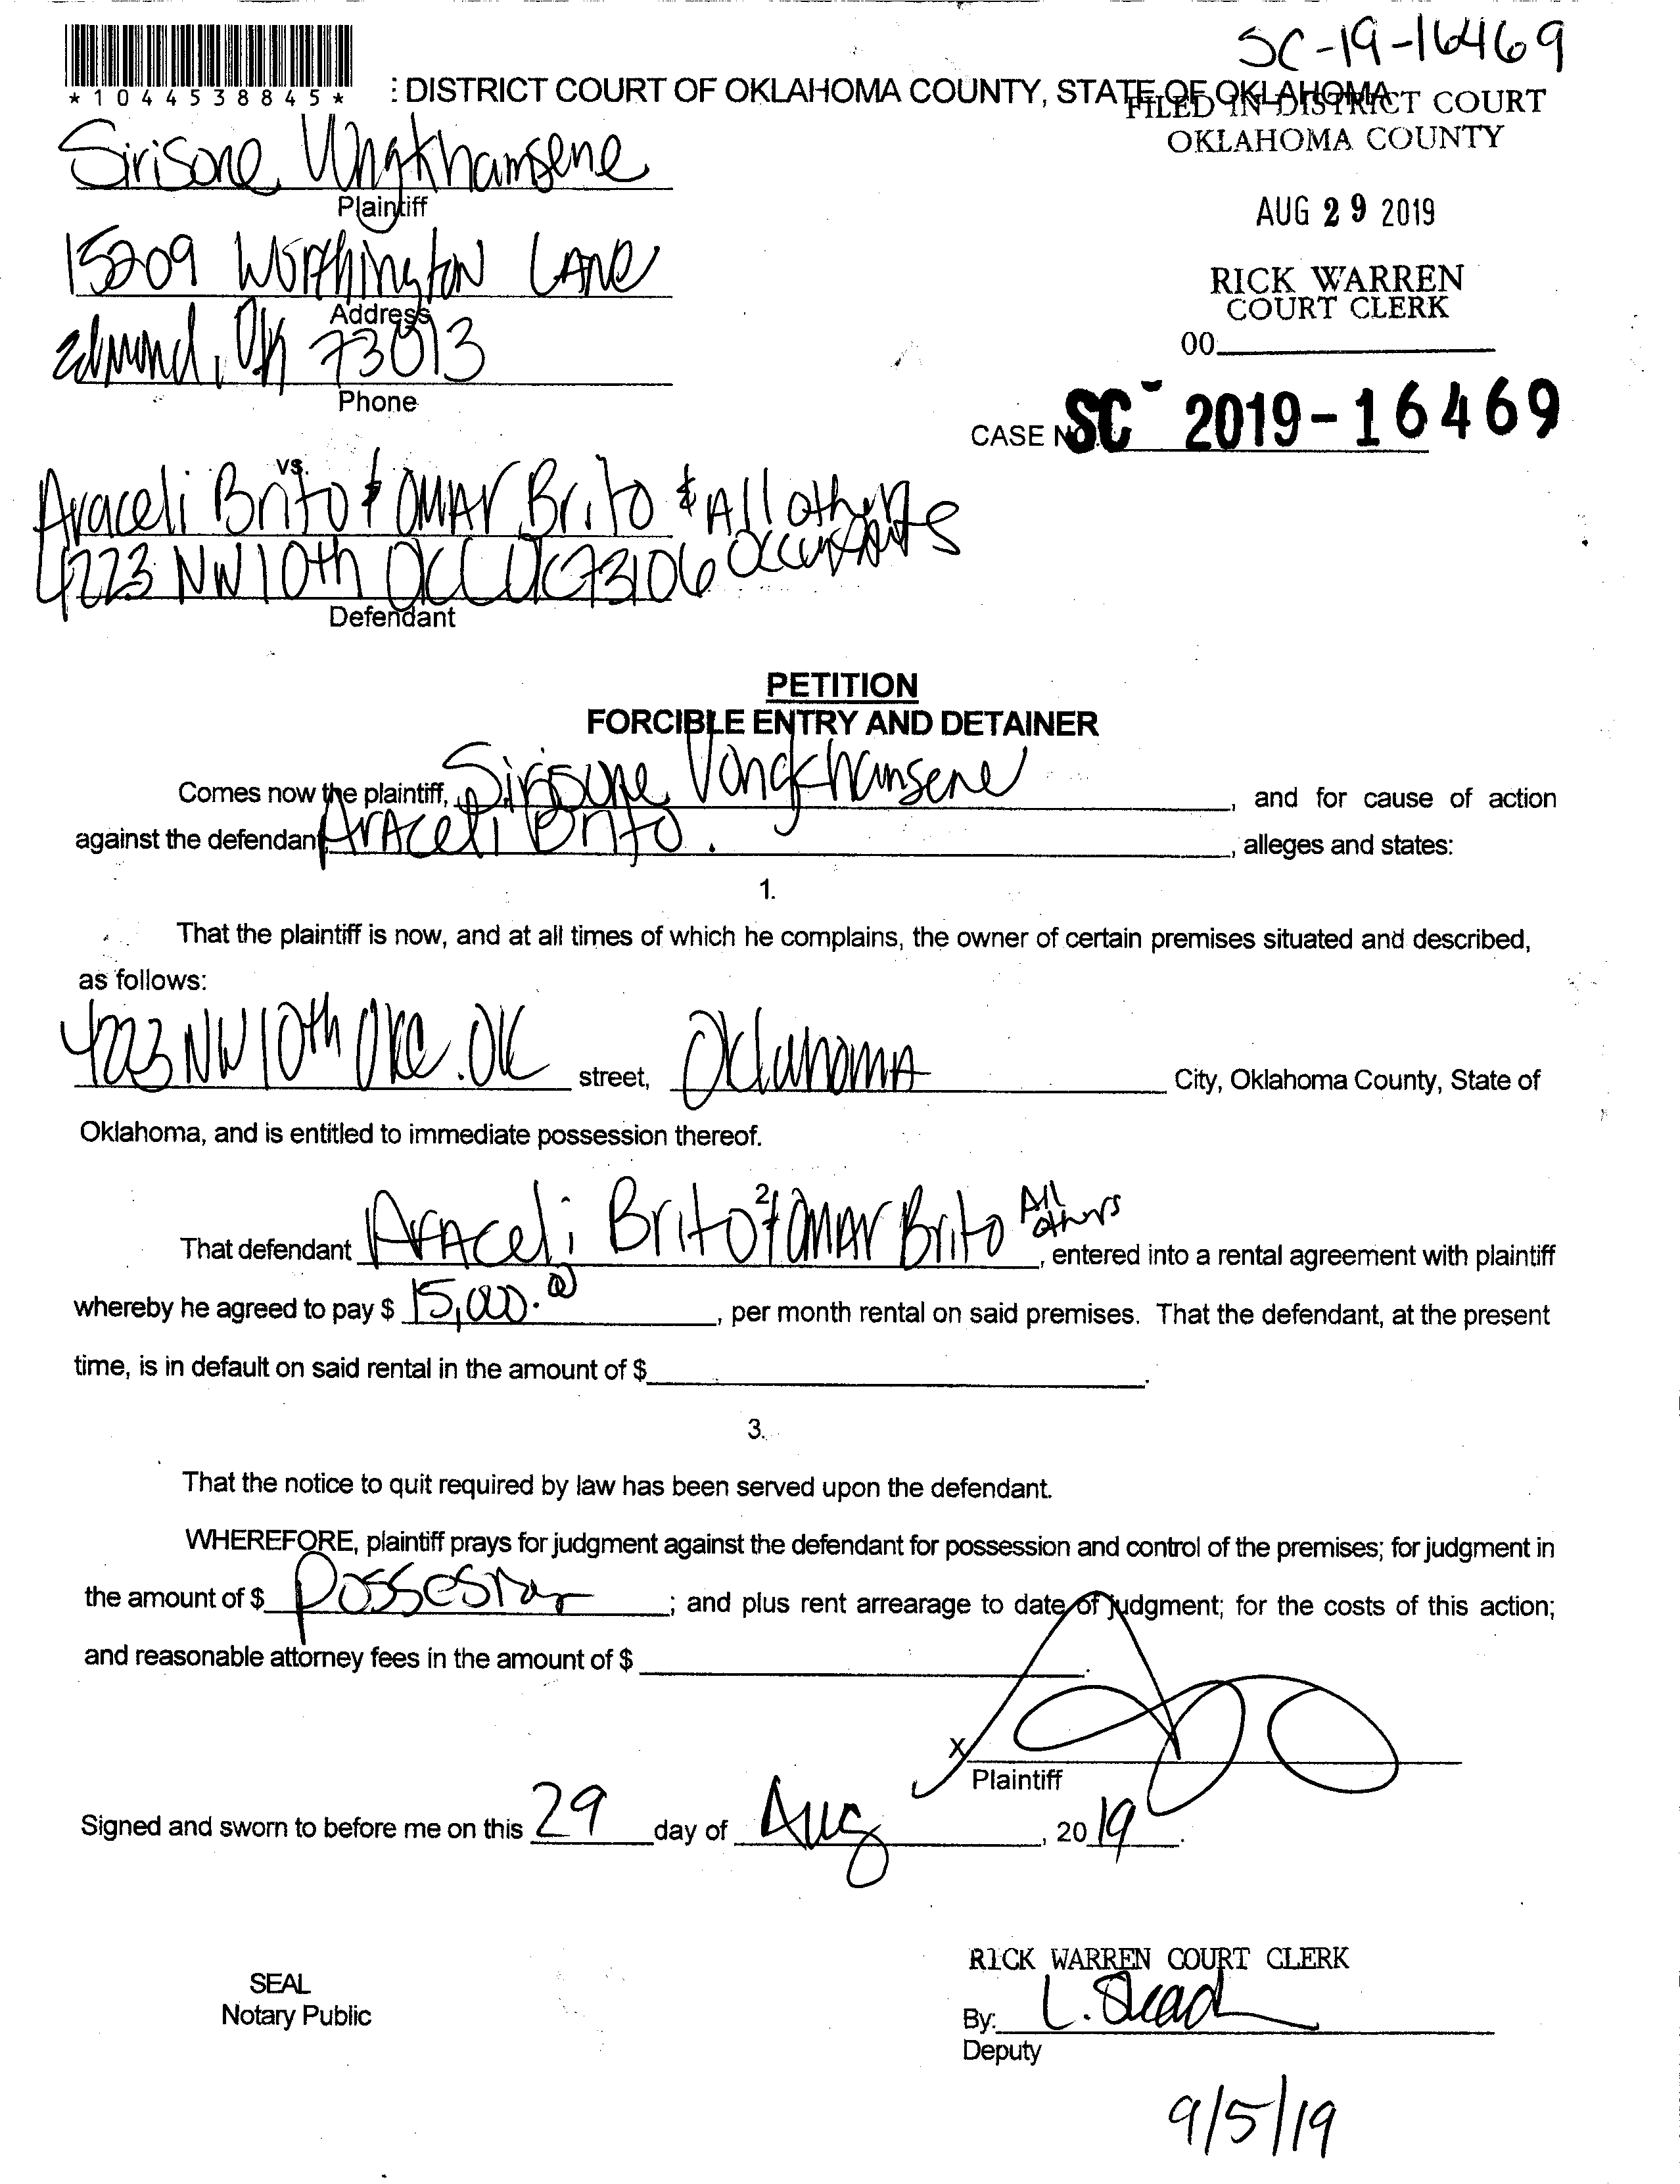 SC-19-16469
*1044538845*
: DISTRICT COURT OF OKLAHOMA COUNTY, STATE OF OKLAHOMA
FILED IN DISTRICT COURT
OKLAHOMA COUNTY
Sirisone Vongkhamsene
Plaintiff
AUG 29 2019
15209 Worthington LANe
Address
RICK WARREN
COURT CLERK
Edmond, OK 73013
00
Phone
CASE NO. SC - 2019-16469
vs.
Araceli Brito & OMAR Brito & All others
occupants
4223 NW 10th OKC OK 73106
Defendant
PETITION
FORCIBLE ENTRY AND DETAINER
Comes now the plaintiff, Sirisone Vongkhamsene, and for cause of action
against the defendant, ArAceli Brito., alleges and states:
1.
That the plaintiff is now, and at all times of which he complains, the owner of certain premises situated and described,
as follows:
4223 NW 10th OKC. OK street, OklahomA City, Oklahoma County, State of
Oklahoma, and is entitled to immediate possession thereof.
2.
That defendant ArAceli Brito & OMAR Brito All others, entered into a rental agreement with plaintiff
whereby he agreed to pay $ 15,000.00, per month rental on said premises. That the defendant, at the present
time, is in default on said rental in the amount of $.
3.
That the notice to quit required by law has been served upon the defendant.
WHEREFORE, plaintiff prays for judgment against the defendant for possession and control of the premises; for judgment in
the amount of $ Possession; and plus rent arrearage to date of judgment; for the costs of this action;
and reasonable attorney fees in the amount of $.
X
Plaintiff
Signed and sworn to before me on this 29 day of Aug, 2019.
RICK WARREN COURT CLERK
SEAL
Notary Public
By:
Deputy
9/5/19